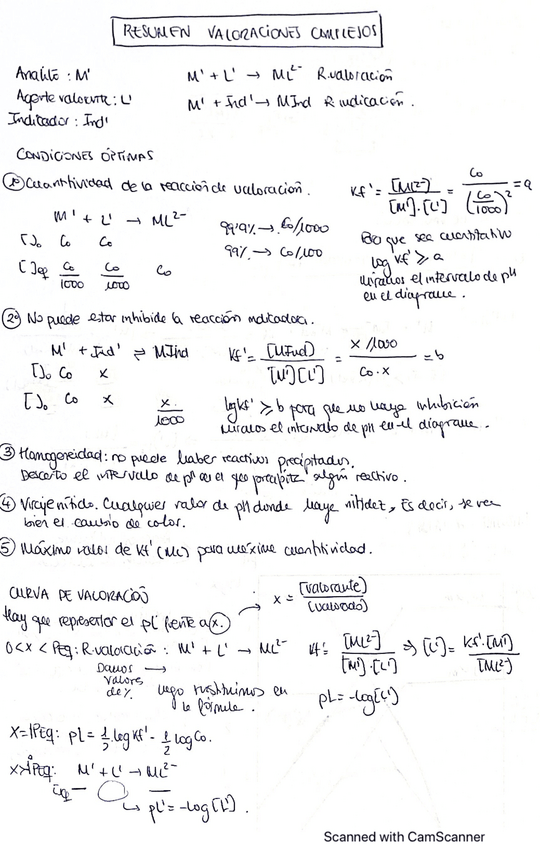 RESUMEN VALORACIONES COMPLEJOS
Analito : M'
M' + L' → ML²⁻ R.valoración
Agente valorante : L'
M' + Ind' → MInd R indicación.
Indicador : Ind'
CONDICIONES ÓPTIMAS
1º Cuantitividad de la reacción de valoración.
Kf' = [ML²⁻] / [M']·[L'] = Co / (Co/1000)² = a
M' + L' → ML²⁻
[ ]o Co Co
[ ]eq Co/1000 Co/1000 Co
99'9% → Co/1000
99% → Co/100
Para que sea cuantitativo
log Kf' ≥ a
miramos el intervalo de pH
en el diagrama.
2º No puede estar inhibida la reacción indicadora.
M' + Ind' ⇌ MInd
Kf' = [MInd] / [M'][L'] = x/1000 / Co·x = b
[ ]o Co x
[ ]o Co x x/1000
lgKf' ≥ b para que no haya inhibición
miramos el intervalo de pH en el diagrama.
3 Homogeneidad: no puede haber reactivos precipitados.
Descarto el intervalo de pH en el que precipita algún reactivo.
4 Viraje nítido. Cualquier valor de pH donde haya nitidez, Es decir, se vea
bien el cambio de color.
5 Máximo valor de Kf' (ML) para máxima cuantitividad.
CURVA DE VALORACIÓN
Hay que representar el pL' frente a x. → x = [valorante] / [valorado]
0 < x < Peq: R.valoración : M' + L' → ML²⁻
Kf' = [ML²⁻] / [M']·[L'] ⇒ [L'] = Kf'·[M'] / [ML²⁻]
Damos →
valores
de %.
luego sustituimos en
la fórmula.
pL = -log[L']
X=1PEq: pL = 1/2 log Kf' - 1/2 log Co.
X>1PEq: M' + L' → ML²⁻
↳ pL' = -log[L'].
Scanned with CamScanner